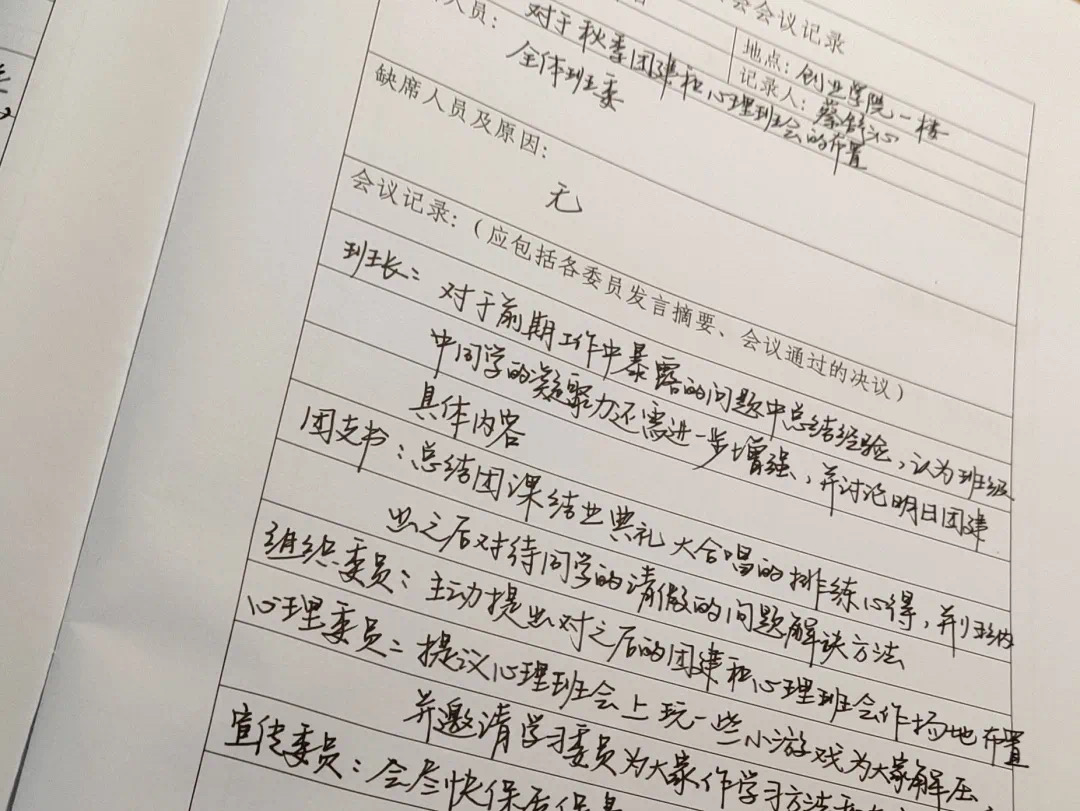 会会议记录
地点：创业学院一楼
记录人：蔡舒沁
对于秋季团建和心理班会的布置
人员：
全体班委
缺席人员及原因：
无
会议记录：（应包括各委员发言摘要、会议通过的决议）
班长：对于前期工作中暴露的问题中总结经验，认为班级
中同学的凝聚力还需进一步增强，并讨论明日团建
具体内容
团支书：总结团课结业典礼大合唱的排练心得，并归纳
出之后对待同学的请假的问题解决方法
组织委员：主动提出对之后的团建和心理班会作场地布置
心理委员：提议心理班会上玩一些小游戏为大家解压，
并邀请学习委员为大家作学习方法
宣传委员：会尽快